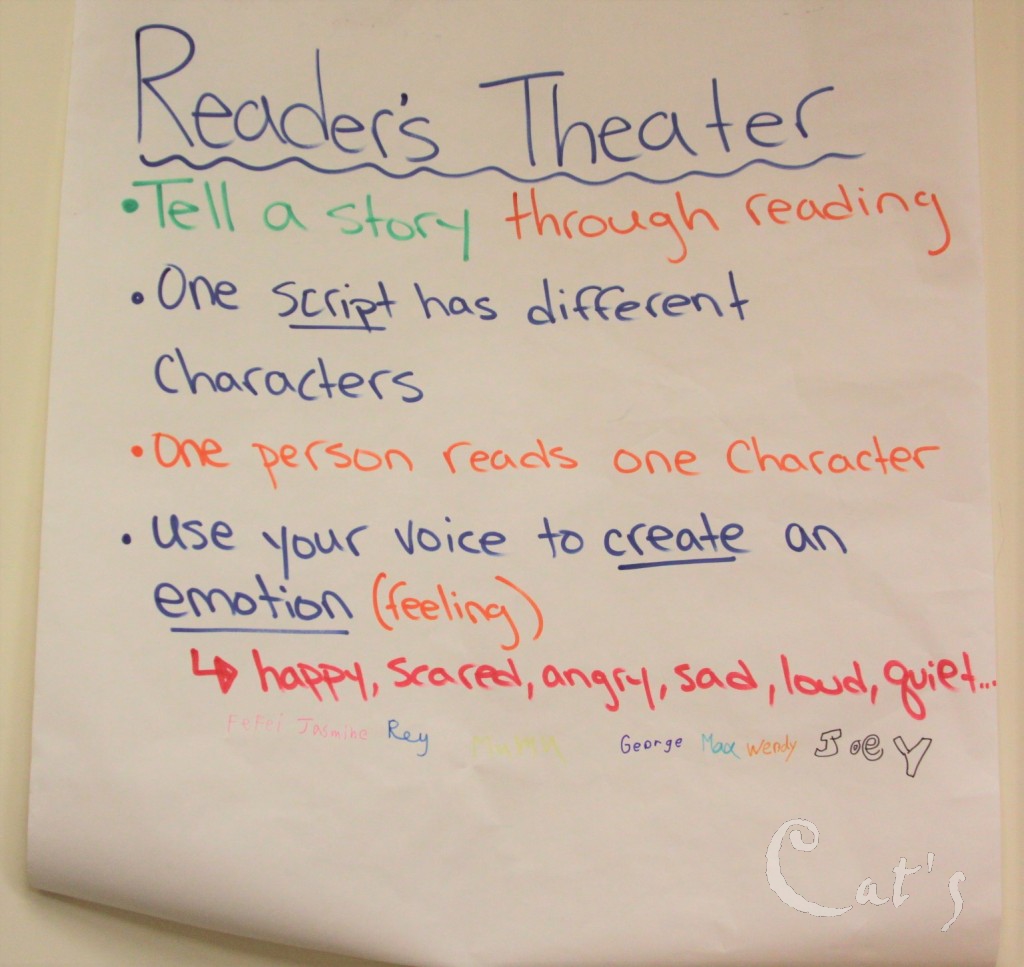 Reader's Theater
• Tell a story through reading
• One script has different
Characters
• One person reads one Character
• Use your voice to create an
emotion (feeling)
↳ happy, scared, angry, sad, loud, quiet...
FeFei Jasmine Rey George Max Wendy Joey
Cat's